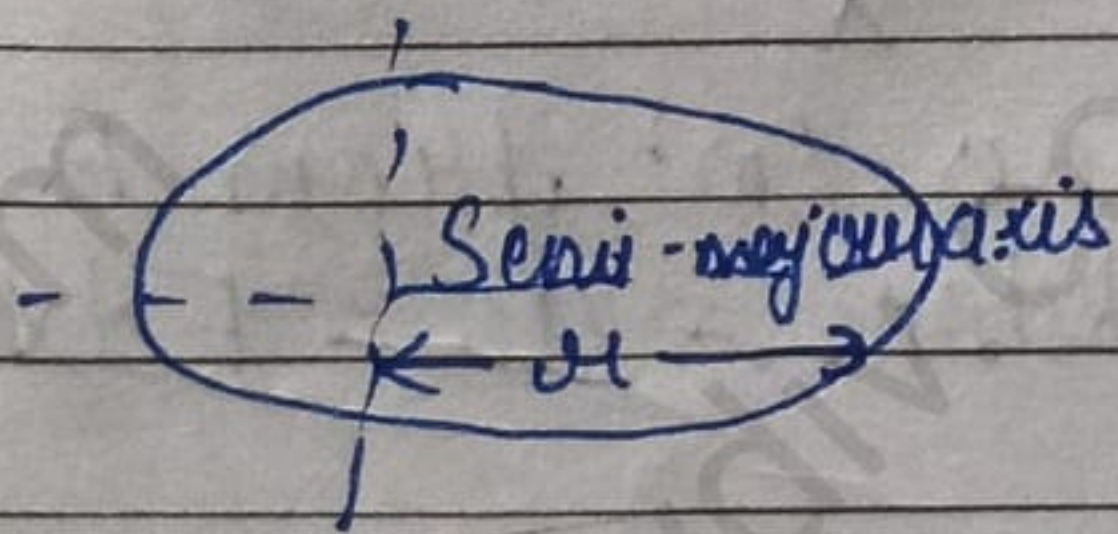 Semi-major axis
r